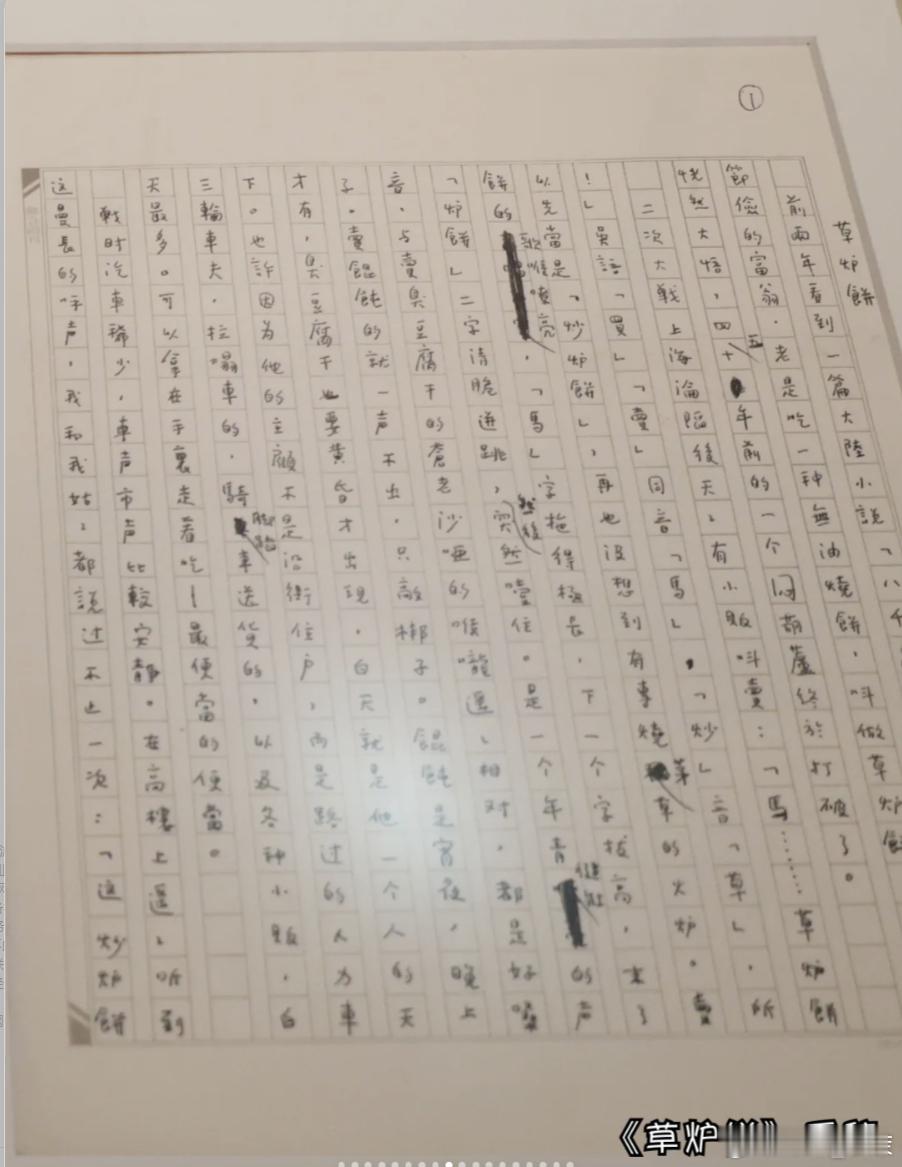 草炉餅
前兩年看到一篇大陸小說「八千
節儉的富翁,老是吃一種無油燒餅,叫做草炉餅
恍然大悟,四五十年前的一個悶葫蘆終於打破了。
二次大戰上海淪陷後天天有小販叫賣:「馬……草炉餅
!」吳語「買」「賣」同音「馬」,「炒」音「草」,所
以先當是「炒炉餅」,再也沒想到有專燒茅草的火炉。賣
餅的歌喉嘹亮,「馬」字拖得極長,下一个字拔高,末了
「炉餅」二字清脆迸跳,然後突然噎住。是一个年青健壯的声
音,与賣臭豆腐干的蒼老沙啞的喉嚨遙遙相对,都是好嗓
子。賣餛飩的就一声不出,只敲梆子。餛飩是宵夜,晚上
才有,臭豆腐干也要黃昏才出現,白天就是他一个人的天
下。也許因为他的主顧不是沿街住户,而是路过的人力車
三輪車夫,拉塌車的,騎脚踏車送貨的,以及各种小販,白
天最多。可以拿在手裏走着吃—最便當的便當。
戰时汽車稀少,車声市声比較安靜。在高樓上遙遙听到
这曼長的呼声,我和我姑姑都說过不止一次:「这炒炉餅
①
《草炉